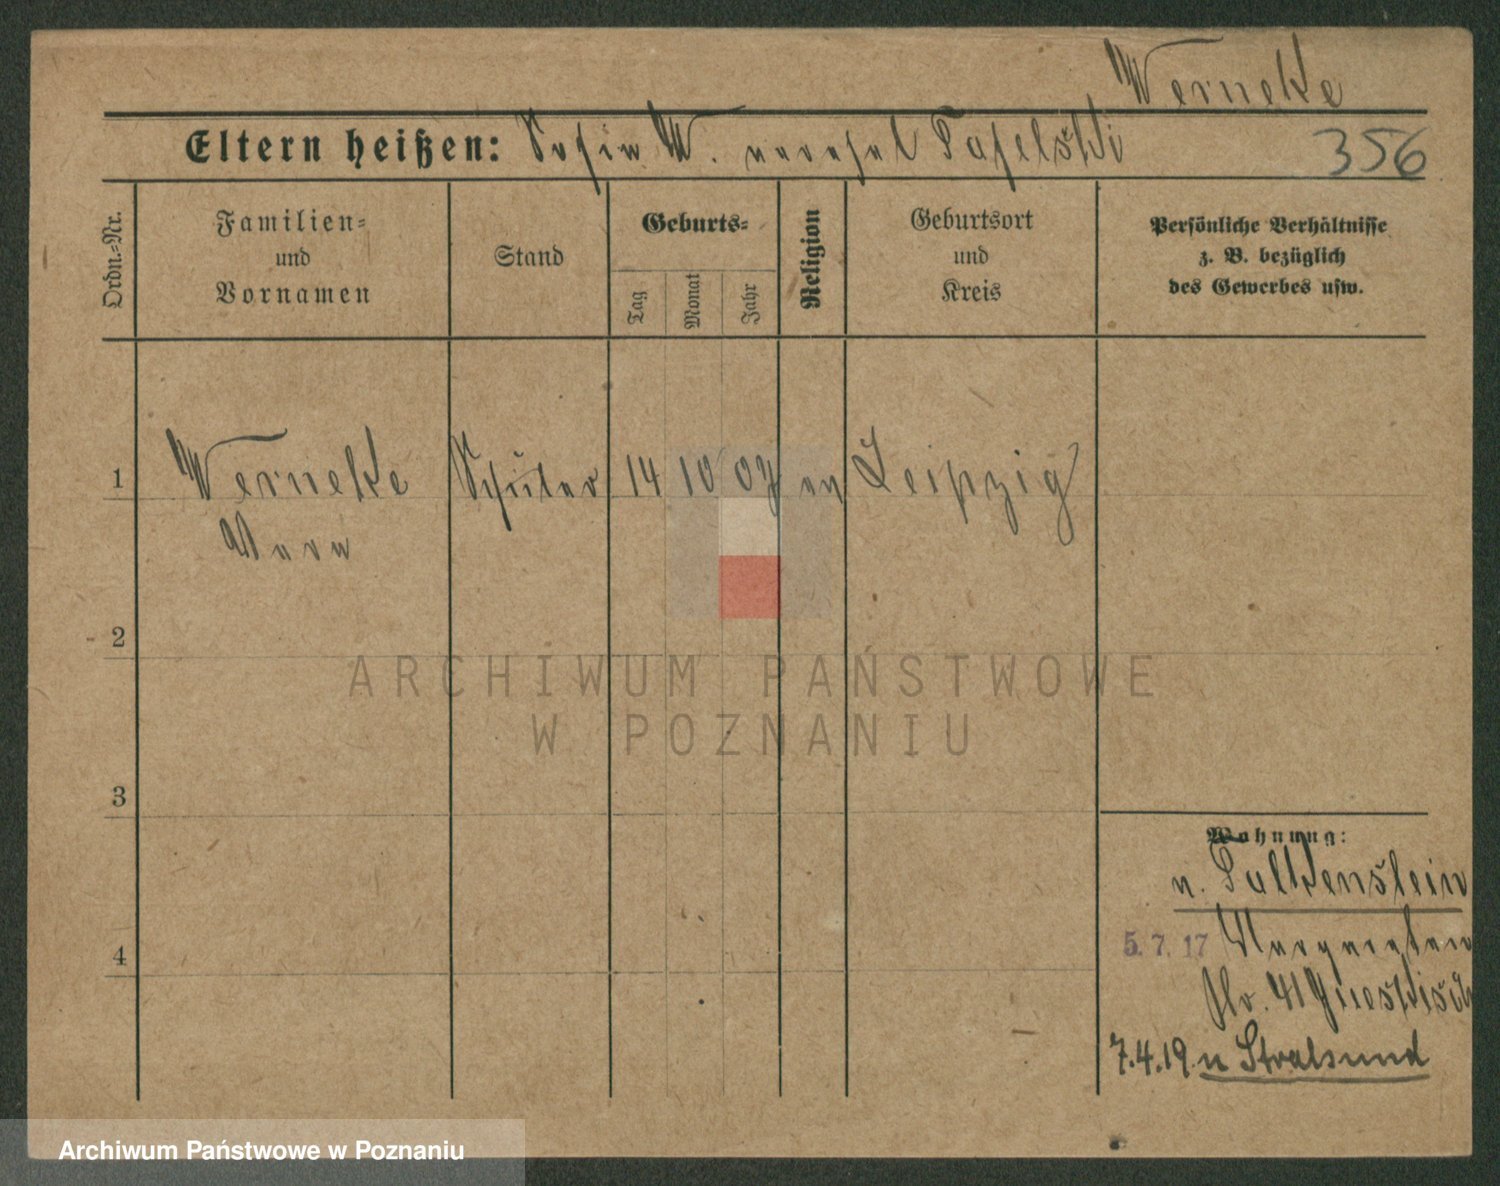 Werneke
Eltern heißen: Sofie W. verehel
356
Ordn.=Nr.
Familien=
und
Vornamen
Stand
Geburts=
Tag
Monat
Jahr
Religion
Geburtsort
und
Kreis
Persönliche Verhältnisse
z. B. bezüglich
des Gewerbes usw.
1 Werneke Schüler 14 10 07 ev Leipzig
2
3
4
Wohnung:
n. Falkenstein
5. 7. 17 Margareten
str. 41
7.4.19 n Stralsund
ARCHIWUM PAŃSTWOWE
W POZNANIU
Archiwum Państwowe w Poznaniu